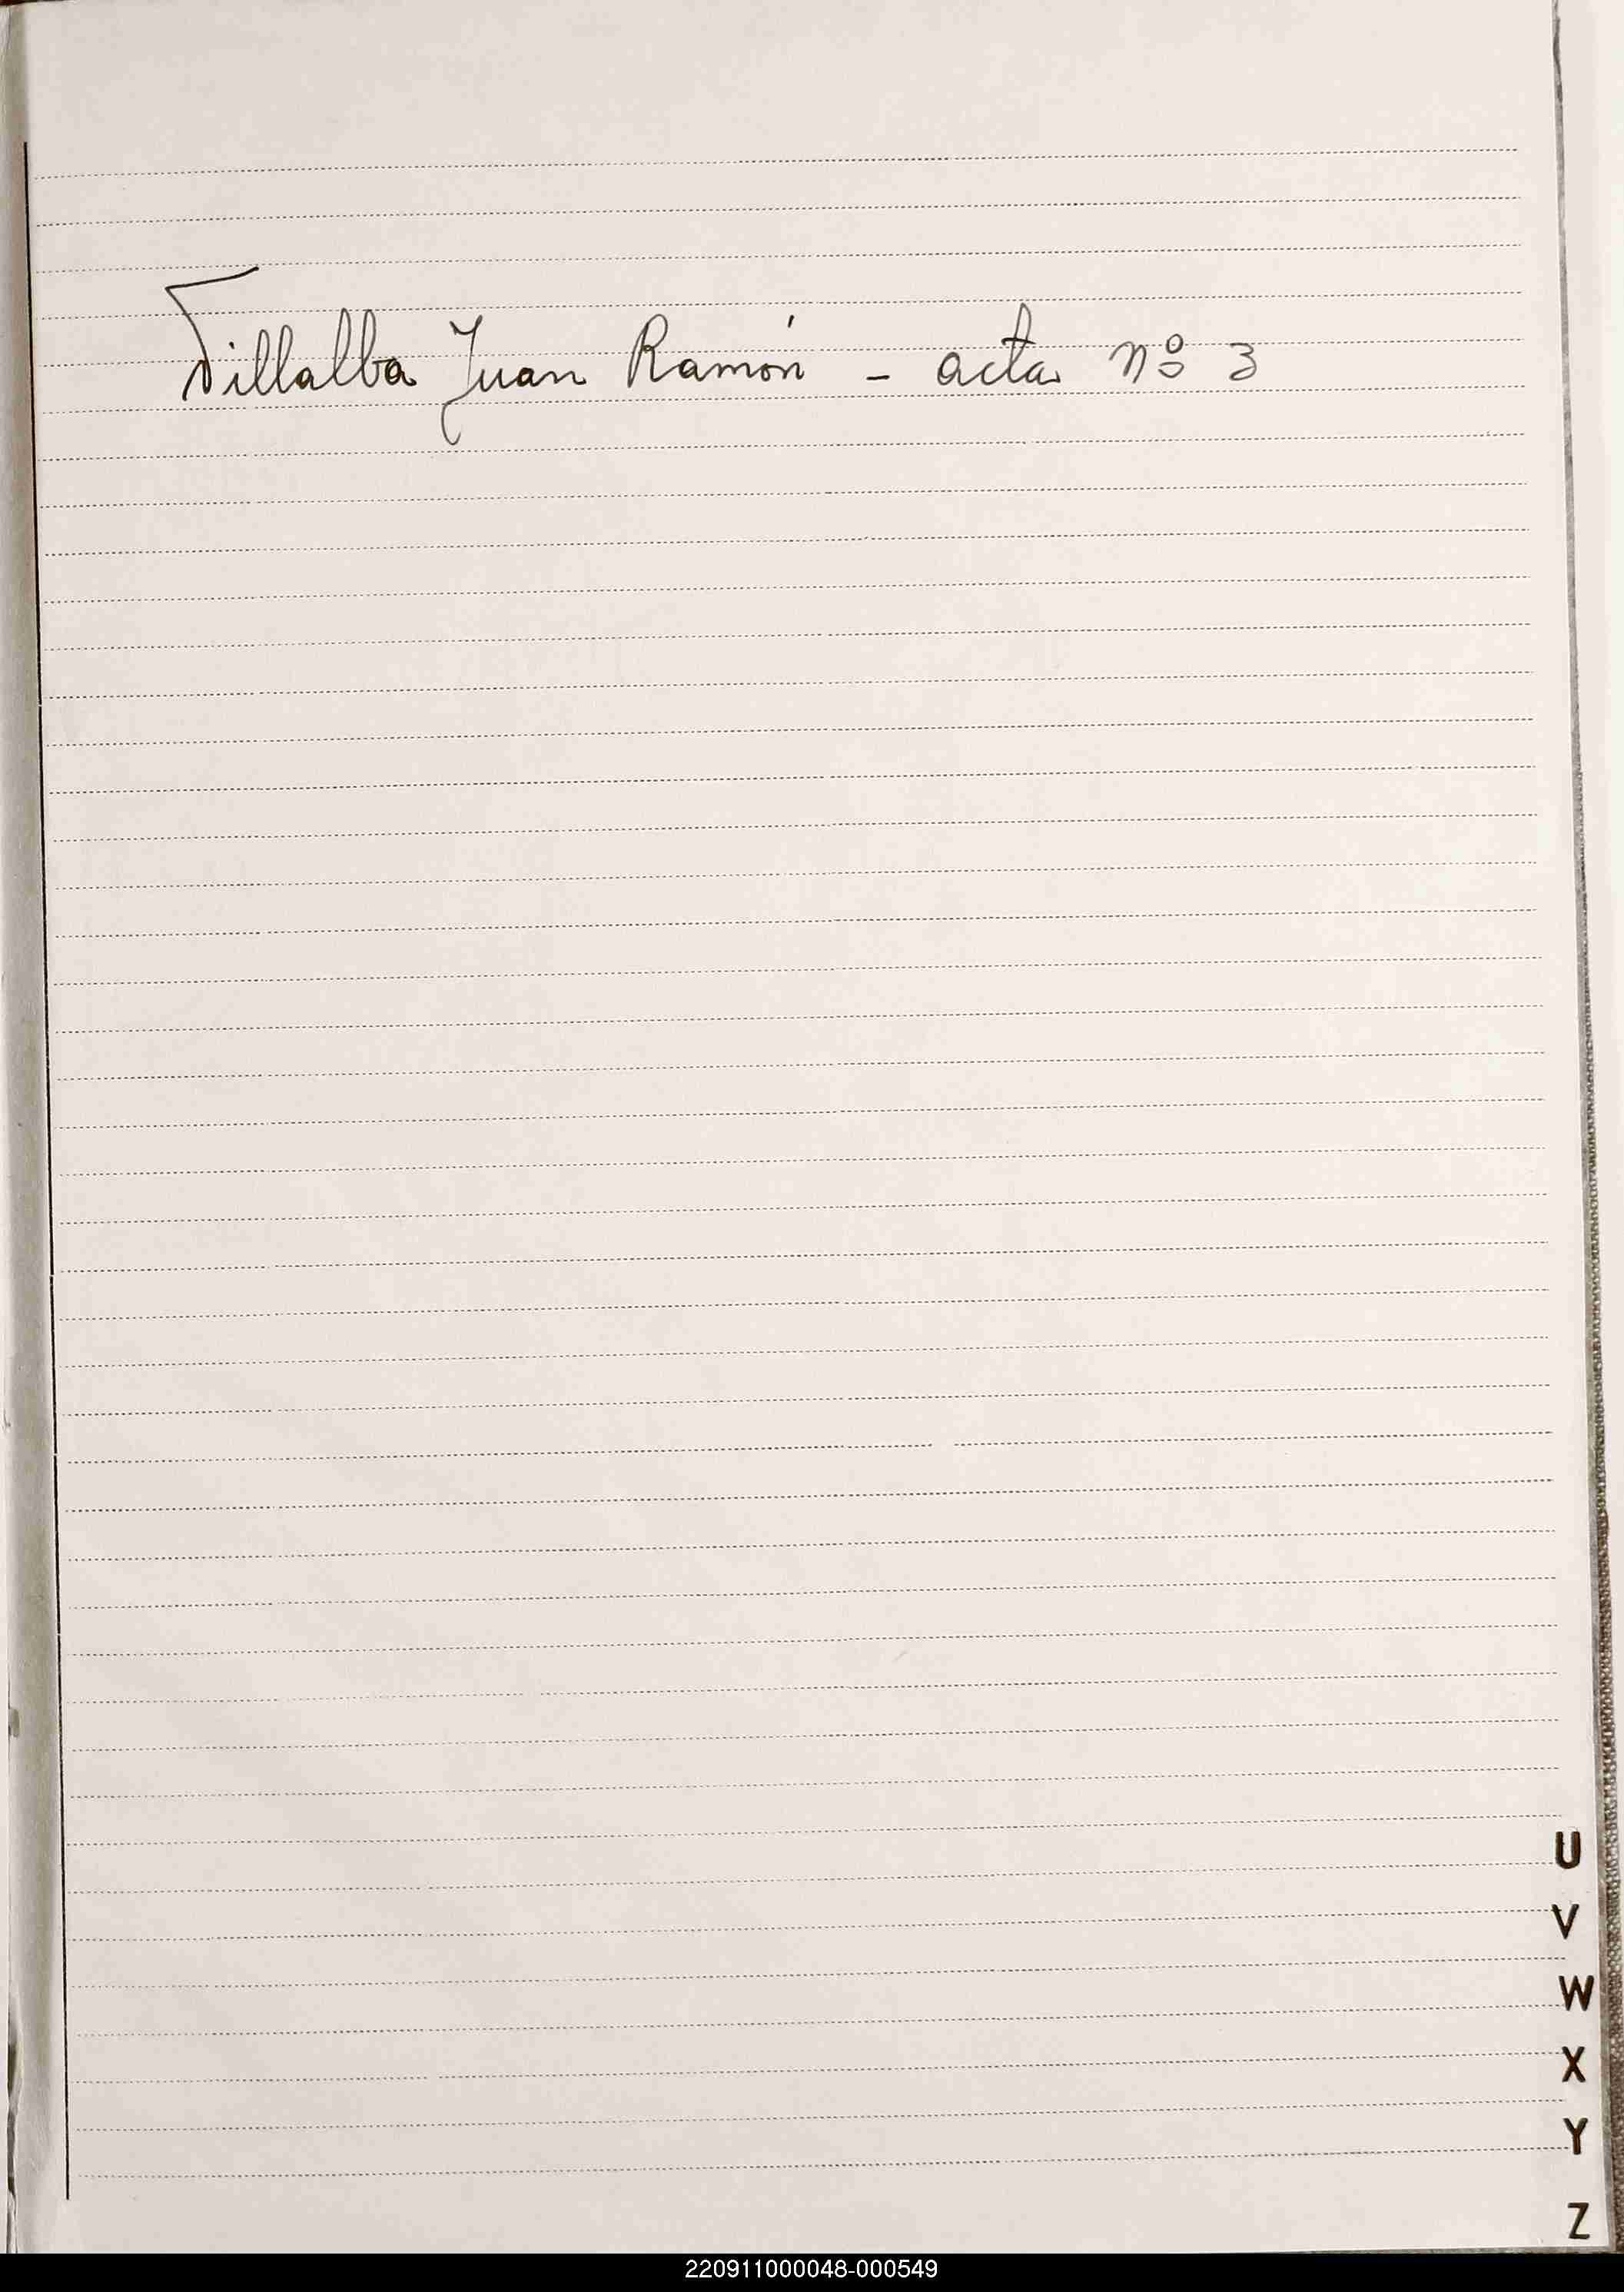 Villalba Juan Ramón - acta nº 3
U
V
W
X
Y
Z
220911000048-000549